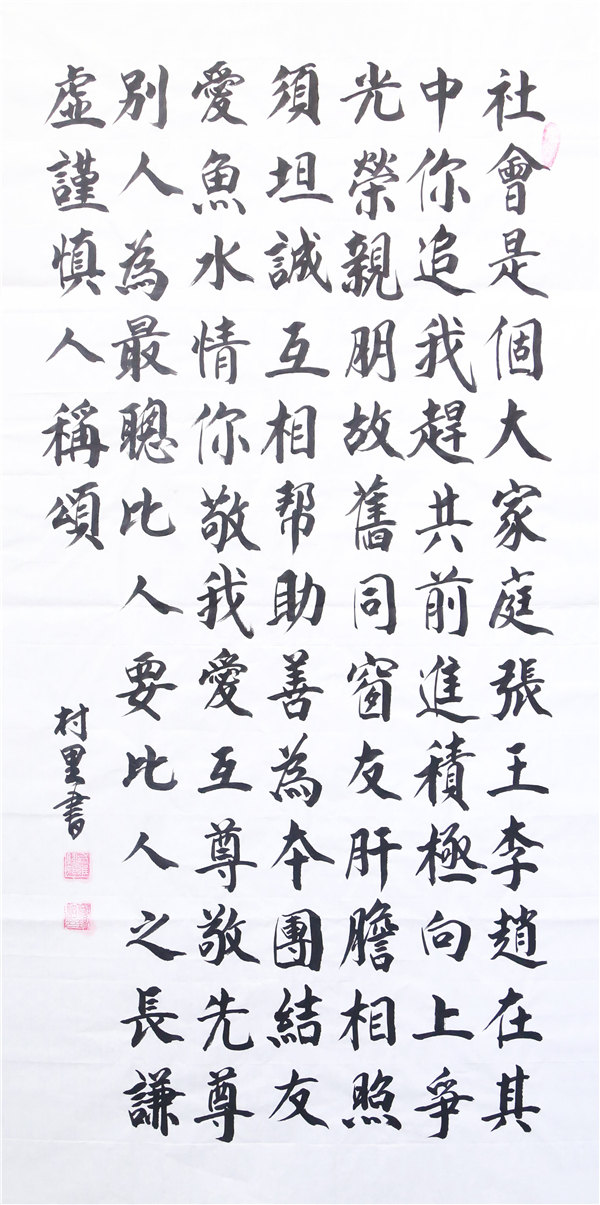 社會是個大家庭張王李趙在其
中你追我趕共前進積極向上爭
光榮親朋故舊同窗友肝膽相照
須坦誠互相帮助善為本團結友
愛魚水情你敬我愛互尊敬先尊
別人為最聰比人要比人之長謙
虛謹慎人稱頌
村里書